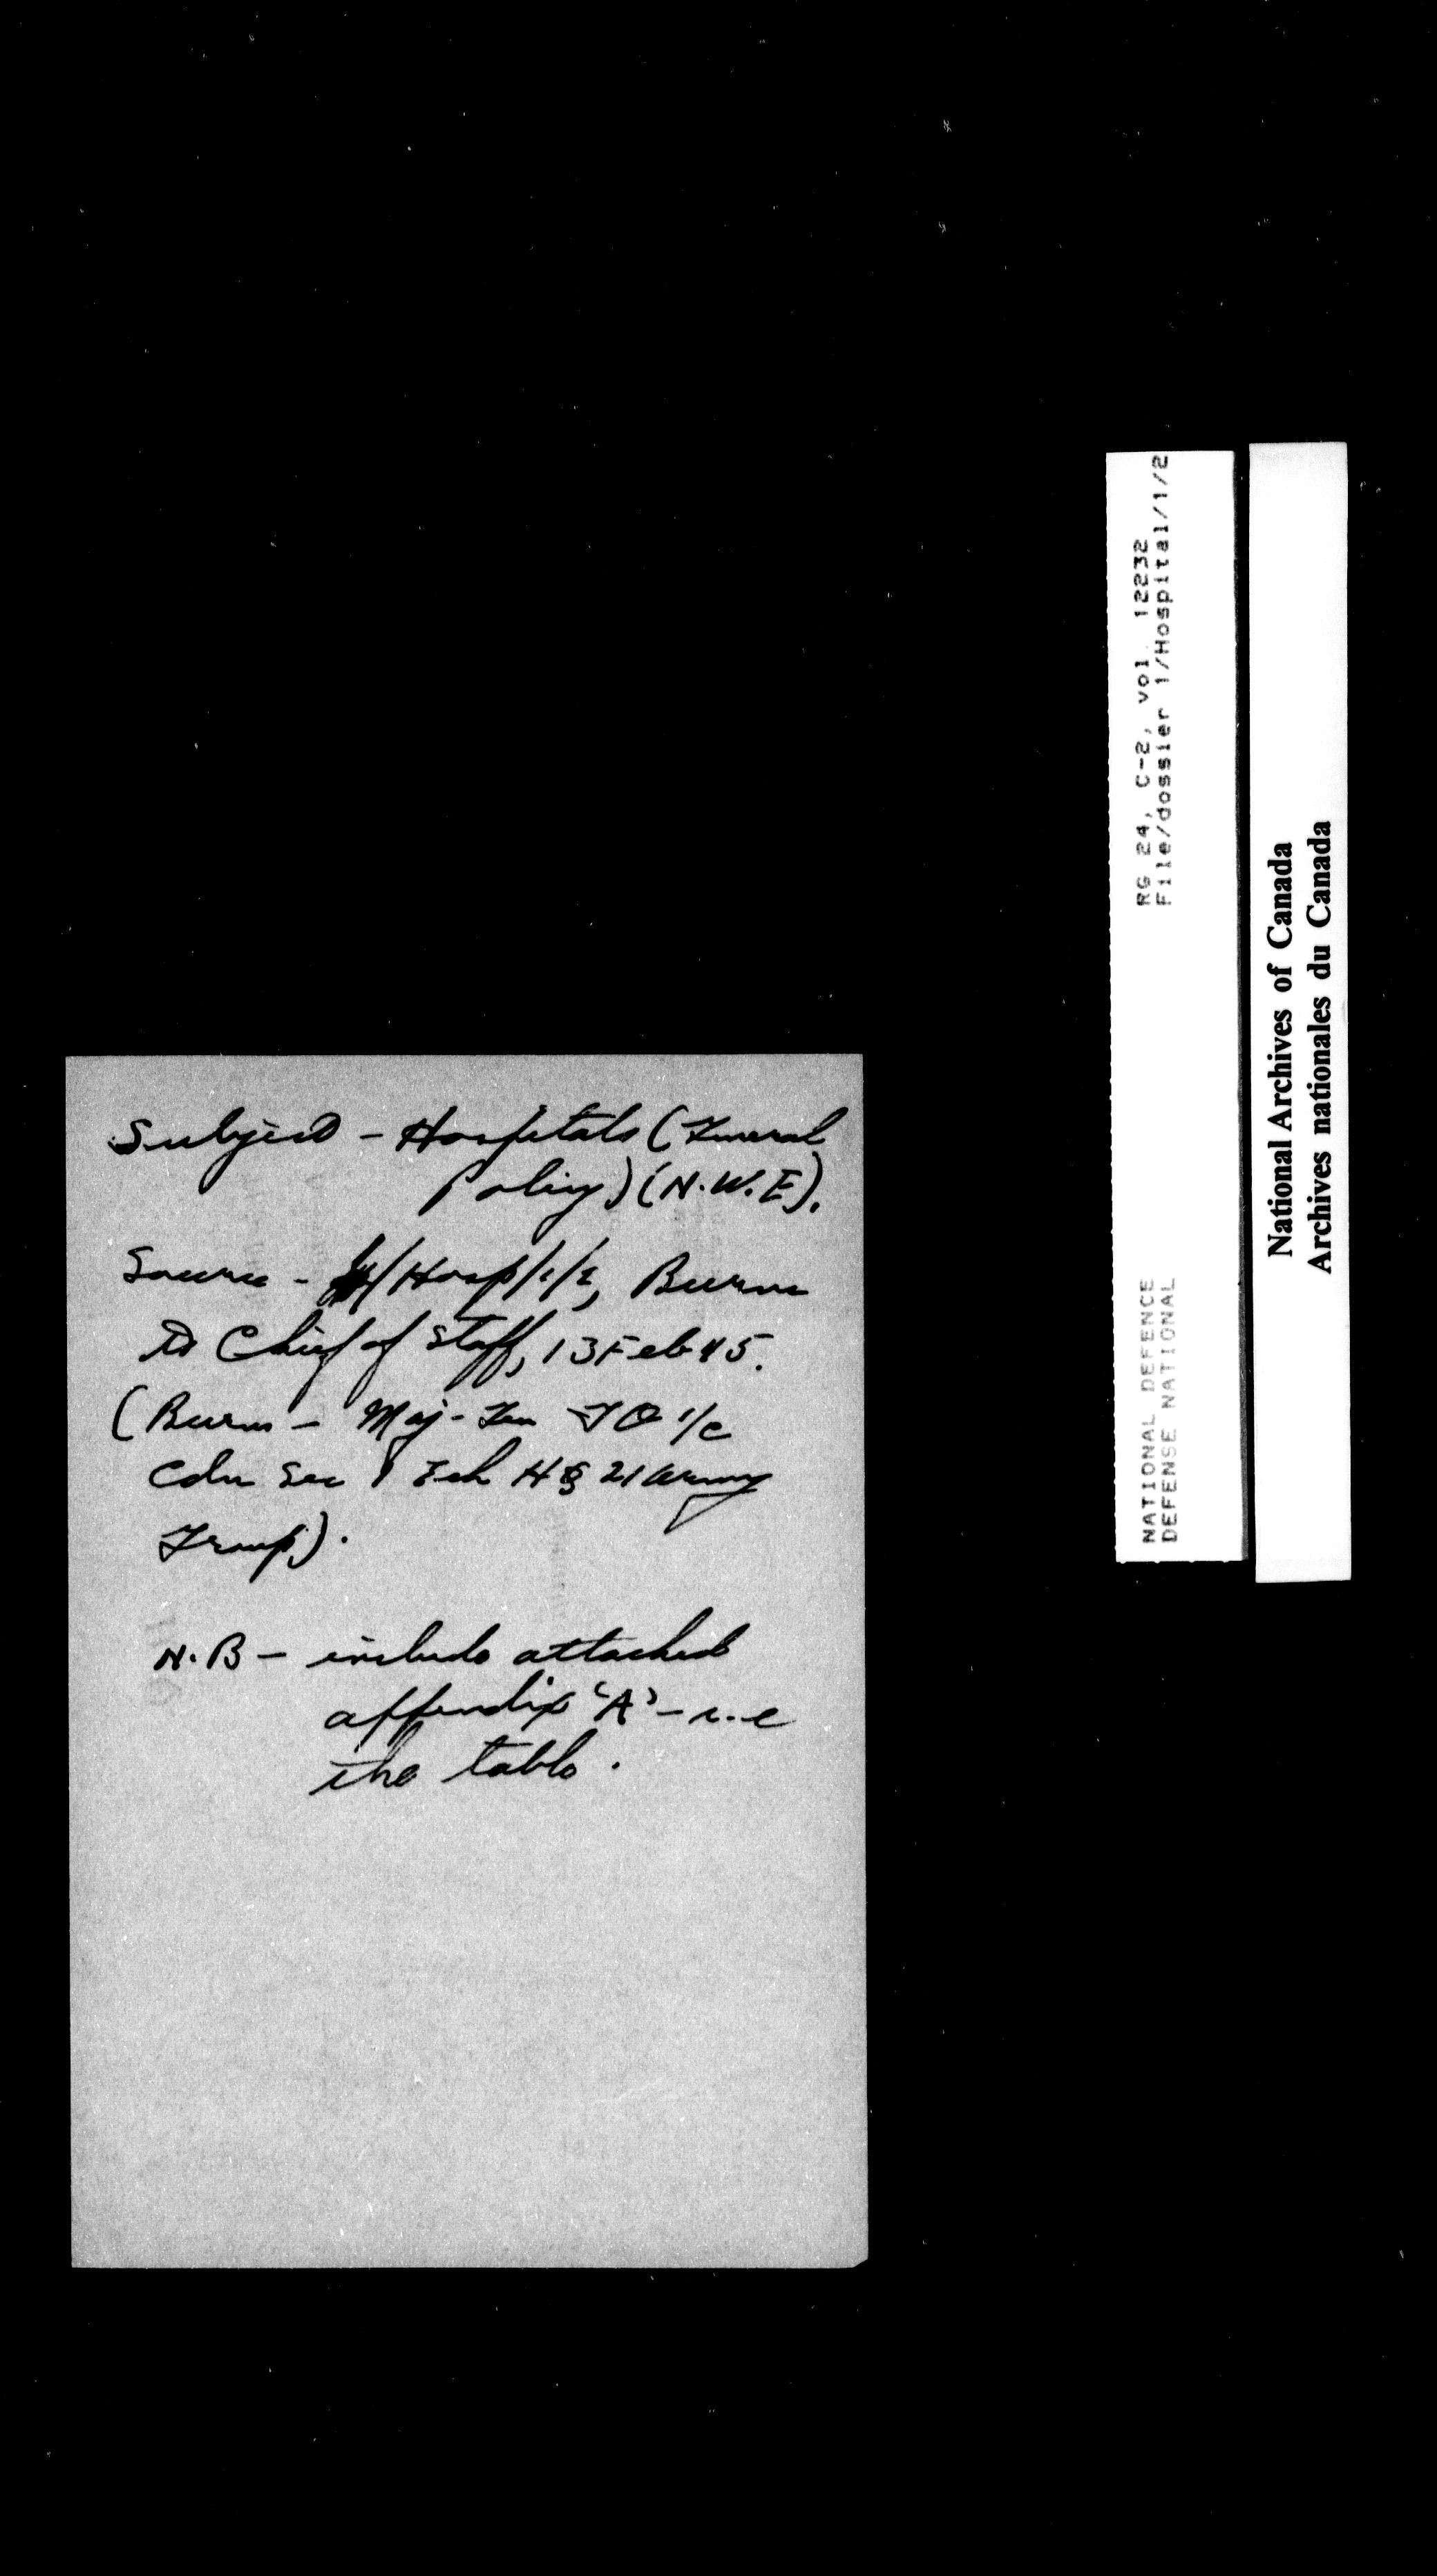 Subject - Hospitals (General
Policy) (N.W.E).
Source - 1/Hosp/1/2, Burns
to Chief of Staff, 13 Feb 45.
(Burns - Maj-Gen GO i/c
Cdn Sec 1 Ech HQ 21 Army
Group).
N.B - include attached
appendix 'A' - i.e
the table.
RG 24, C-2, vol. 12232
File/dossier 1/Hospital/1/2
NATIONAL DEFENCE
DEFENSE NATIONAL
National Archives of Canada
Archives nationales du Canada